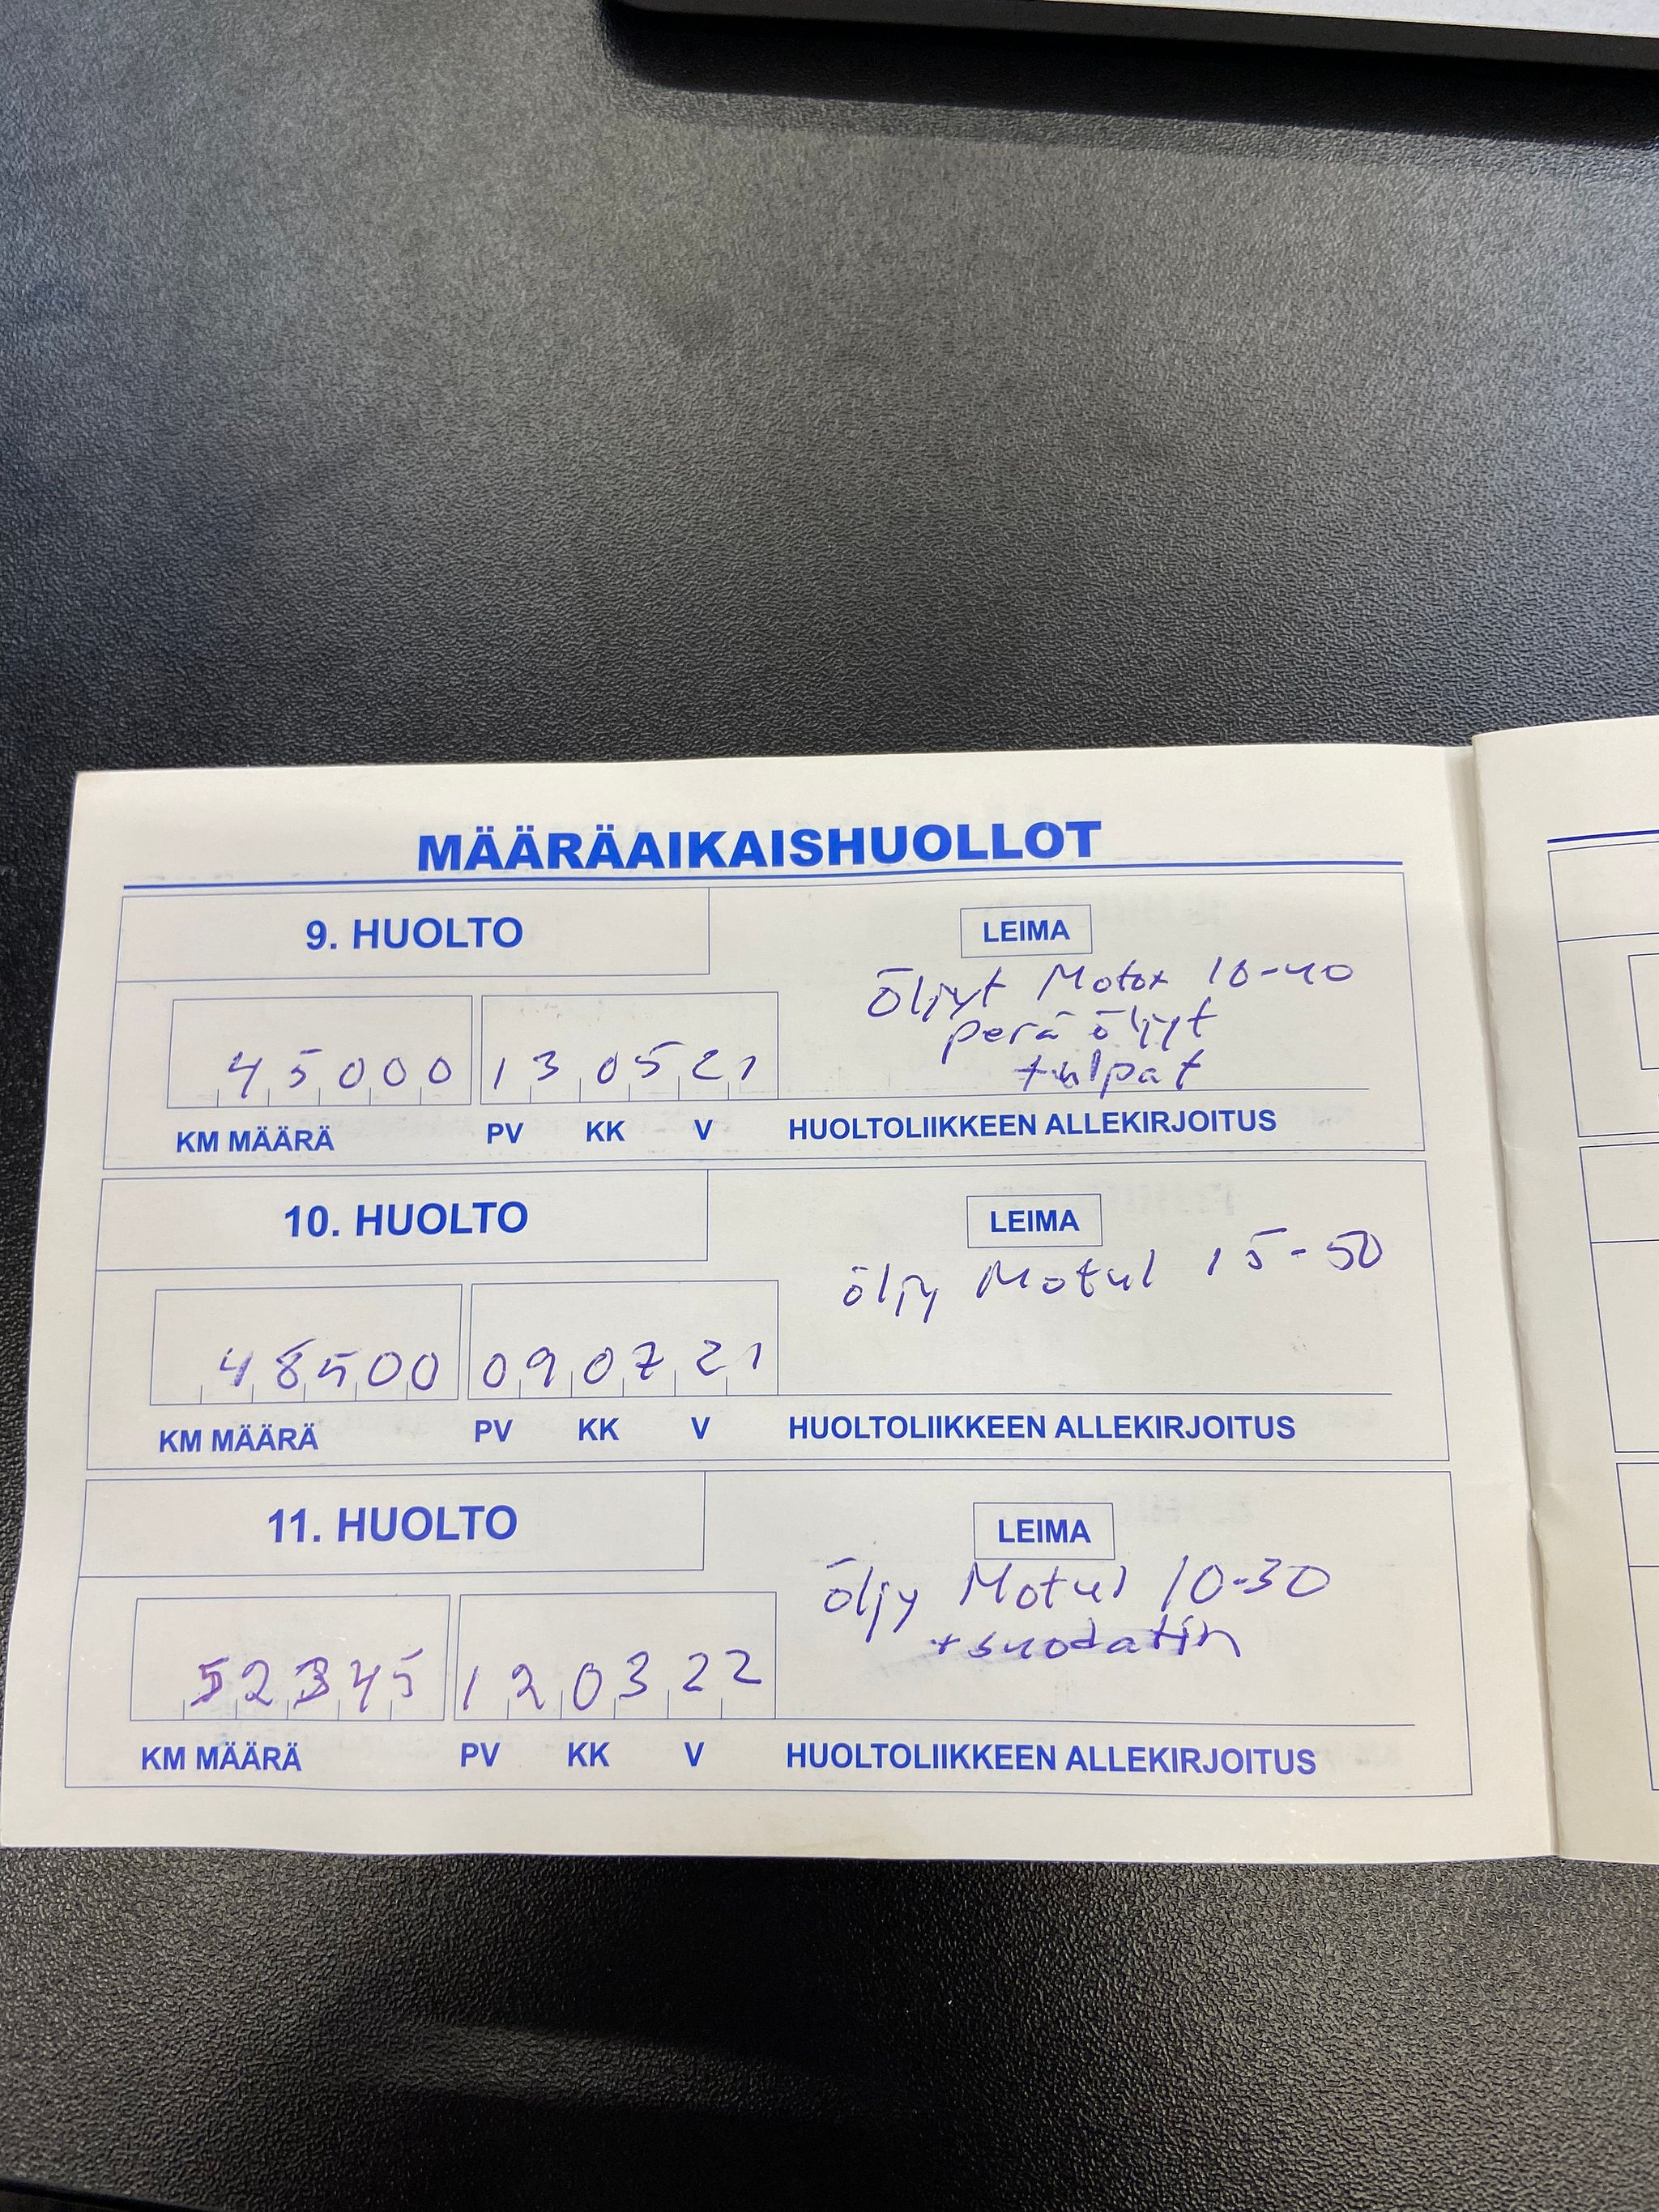 MÄÄRÄAIKAISHUOLLOT
9. HUOLTO
LEIMA
öljyt Motox 10-40
perä öljyt
tulpat
45000 130521
KM MÄÄRÄ PV KK V HUOLTOLIIKKEEN ALLEKIRJOITUS
10. HUOLTO
LEIMA
öljy Motul 15-50
48500 090721
KM MÄÄRÄ PV KK V HUOLTOLIIKKEEN ALLEKIRJOITUS
11. HUOLTO
LEIMA
öljy Motul 10-30
+suodatin
52345 120322
KM MÄÄRÄ PV KK V HUOLTOLIIKKEEN ALLEKIRJOITUS